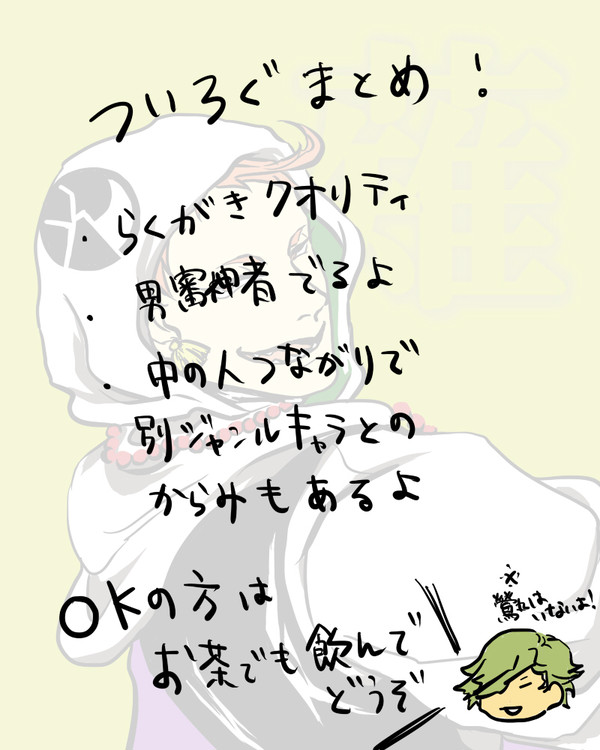 ついろぐまとめ！
・らくがきクオリティ
・男審神者でるよ
・中の人つながりで
別ジャンルキャラとの
からみもあるよ
OKの方は
お茶でも飲んで
どうぞ
※
鶯丸は
いないよ！